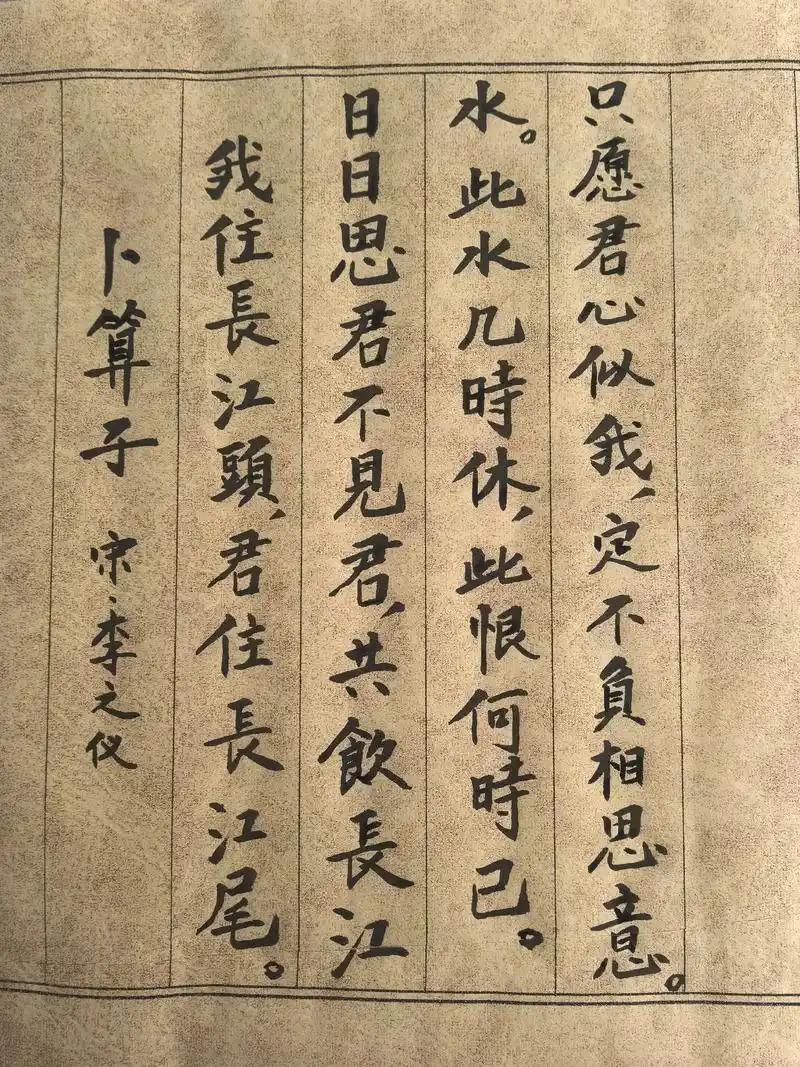 卜算子 宋·李之仪
我住長江頭，君住長江尾。
日日思君不見君，共飲長江
水。此水几時休，此恨何時已。
只愿君心似我，定不負相思意。